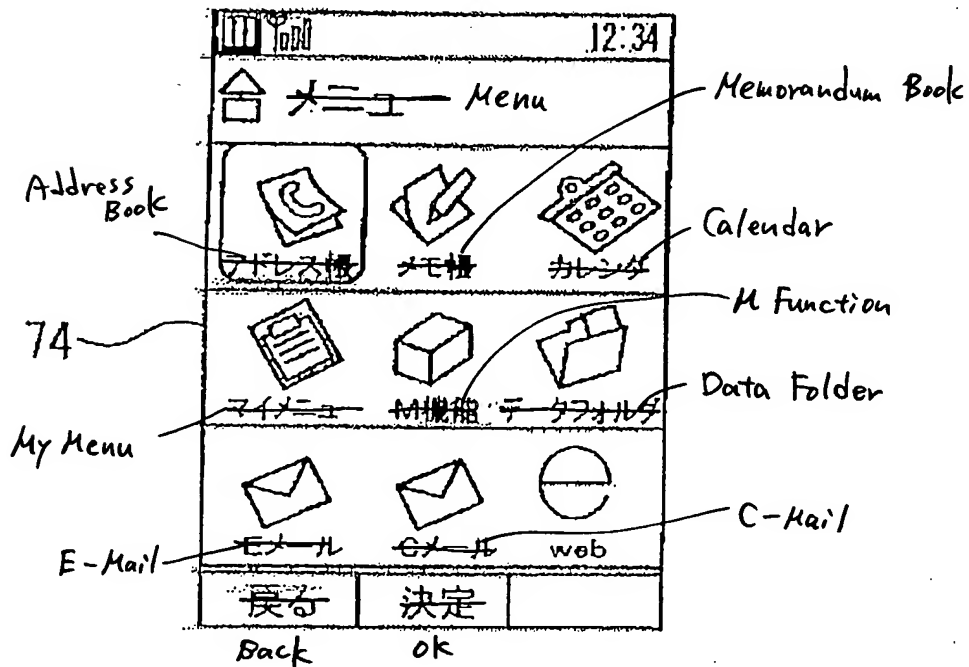 12:34
メニュー Menu
Memorandum Book
Address
Book
アドレス帳 メモ帳 カレンダ
Calendar
M Function
74
マイメニュー M機能 データフォルダ
Data Folder
My Menu
Eメール Cメール web
C-Mail
E-Mail
戻る 決定
Back OK